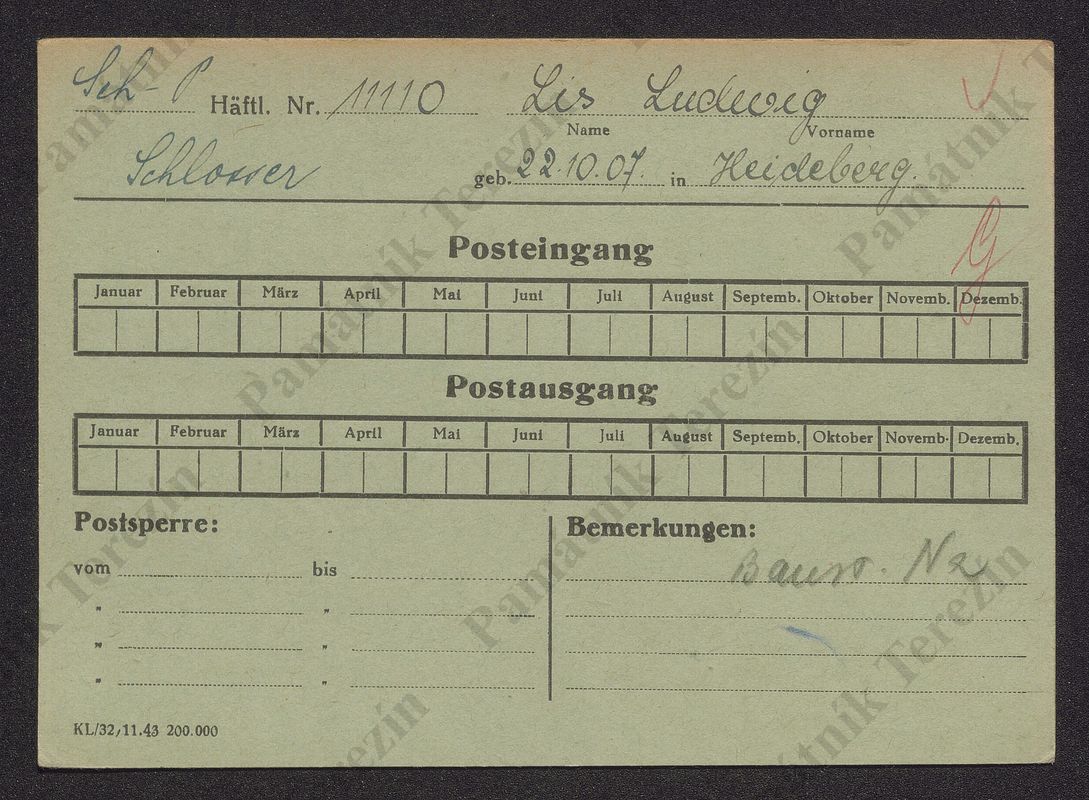 Sch-P Häftl. Nr. 11110 Lis Ludwig
Name Vorname
Schlosser geb. 22.10.07. in Heideberg.
G
Posteingang
Januar Februar März April Mai Juni Juli August Septemb. Oktober Novemb. Dezemb.
Postausgang
Januar Februar März April Mai Juni Juli August Septemb. Oktober Novemb. Dezemb.
Postsperre: Bemerkungen:
vom bis
N2
" "
" "
" "
KL/32,11.43 200.000
Památník Terezín